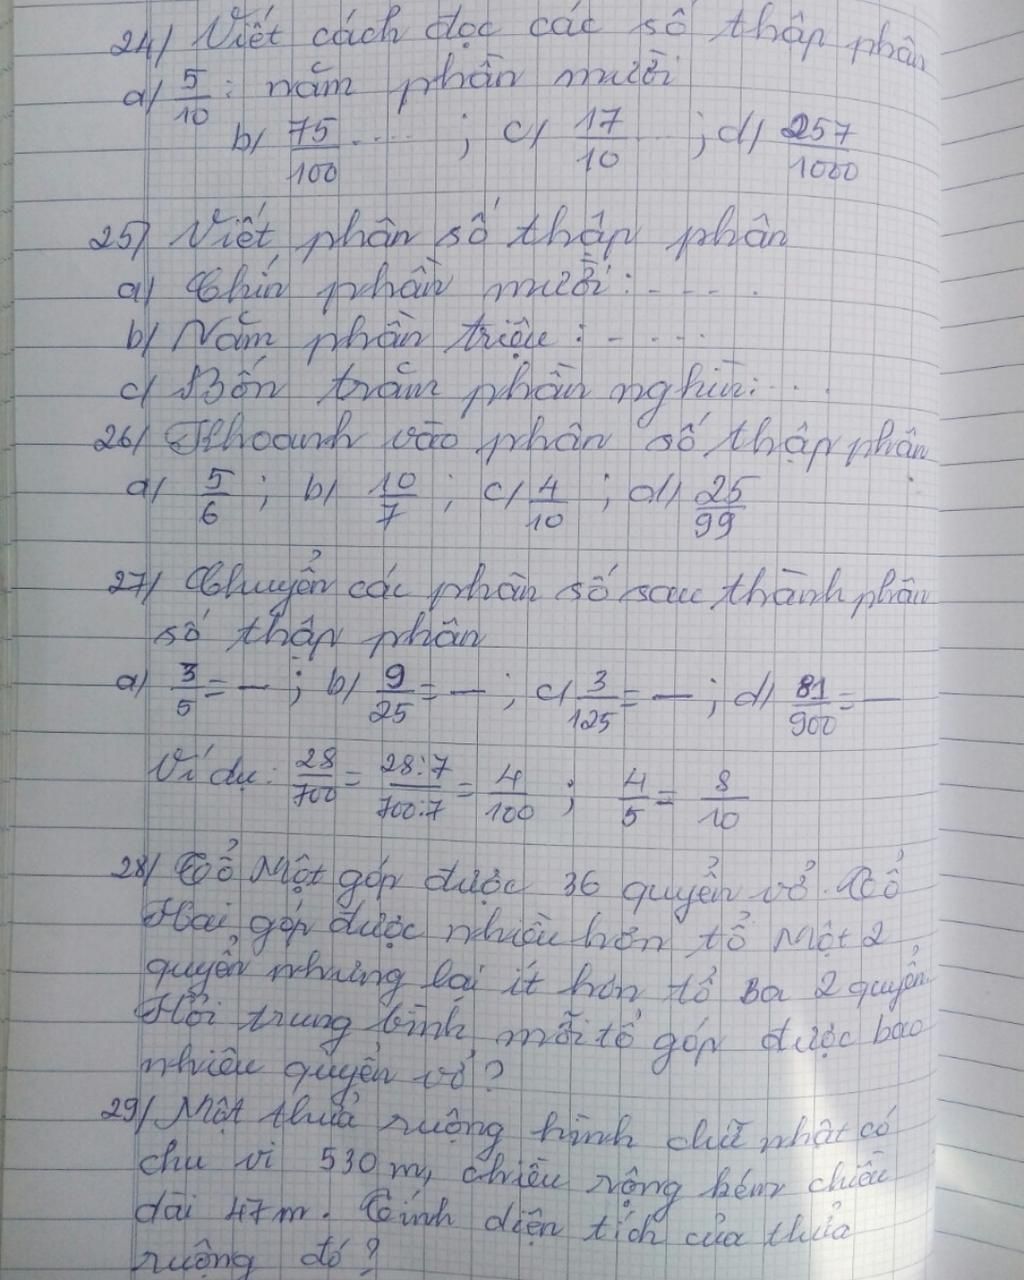 24/ Viết cách đọc các số thập phân
a/ 5/10 : năm phần mười
b/ 75/100 .... ; c/ 17/10 ... ; d/ 257/1000
25/ Viết phân số thập phân
a/ Chín phần mười : - - - .
b/ Năm phần triệu : - . . .
c/ Bốn trăm phần nghìn: . . .
26/ Khoanh vào phân số thập phân
a/ 5/6 ; b/ 10/7 ; c/ 4/10 ; d/ 25/99
27/ Chuyển các phân số sau thành phân
số thập phân
a/ 3/5 = — ; b/ 9/25 = — ; c/ 3/125 = — ; d/ 81/900 = —
Ví dụ: 28/700 = 28:7/700:7 = 4/100 ; 4/5 = 8/10
28/ Tổ Một góp được 36 quyển vở. Tổ
Hai góp được nhiều hơn tổ Một 2
quyển nhưng lại ít hơn tổ Ba 2 quyển.
Hỏi trung bình mỗi tổ góp được bao
nhiêu quyển vở?
29/ Một thửa ruộng hình chữ nhật có
chu vi 530 m, chiều rộng kém chiều
dài 47m. Tính diện tích của thửa
ruộng đó?